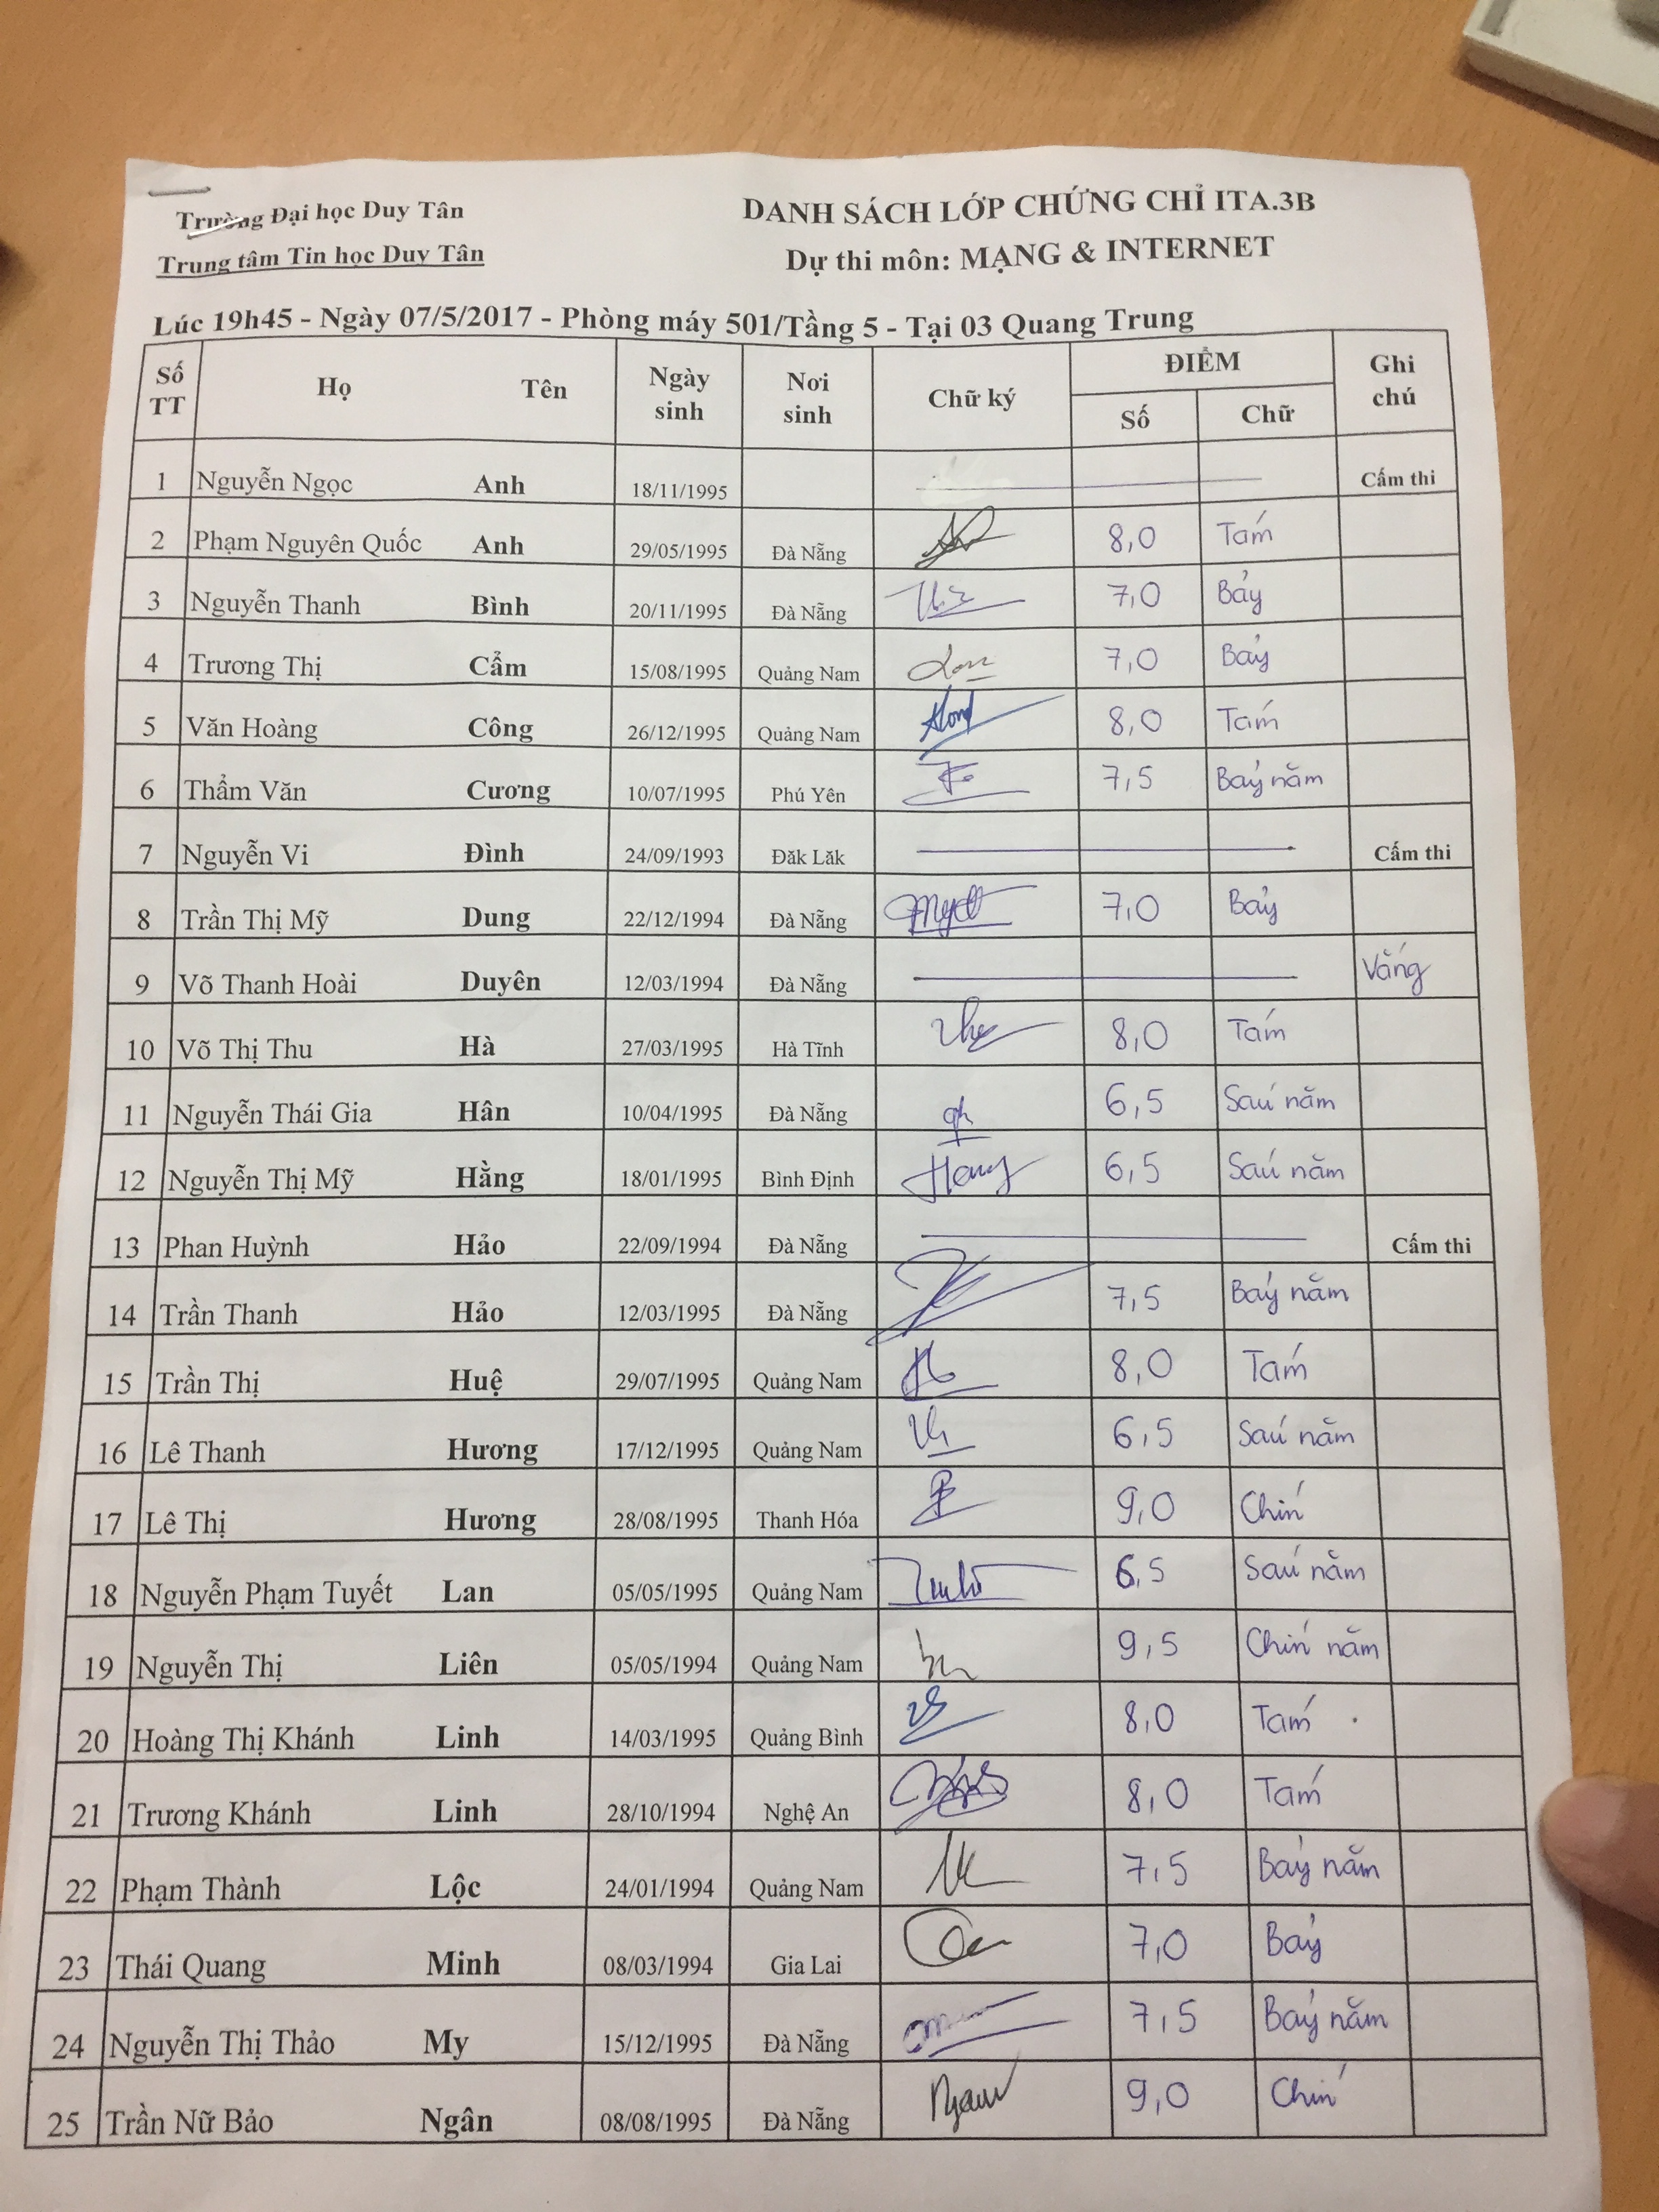 Trường Đại học Duy Tân
Trung tâm Tin học Duy Tân
DANH SÁCH LỚP CHỨNG CHỈ ITA.3B
Dự thi môn: MẠNG & INTERNET
Lúc 19h45 - Ngày 07/5/2017 - Phòng máy 501/Tầng 5 - Tại 03 Quang Trung
Số TT Họ Tên Ngày sinh Nơi sinh Chữ ký ĐIỂM Số Chữ Ghi chú
1 Nguyễn Ngọc Anh 18/11/1995 Cấm thi
2 Phạm Nguyên Quốc Anh 29/05/1995 Đà Nẵng 8,0 Tám
3 Nguyễn Thanh Bình 20/11/1995 Đà Nẵng 7,0 Bảy
4 Trương Thị Cẩm 15/08/1995 Quảng Nam 7,0 Bảy
5 Văn Hoàng Công 26/12/1995 Quảng Nam 8,0 Tám
6 Thẩm Văn Cương 10/07/1995 Phú Yên 7,5 Bảy năm
7 Nguyễn Vi Đình 24/09/1993 Đăk Lăk Cấm thi
8 Trần Thị Mỹ Dung 22/12/1994 Đà Nẵng 7,0 Bảy
9 Võ Thanh Hoài Duyên 12/03/1994 Đà Nẵng Vắng
10 Võ Thị Thu Hà 27/03/1995 Hà Tĩnh 8,0 Tám
11 Nguyễn Thái Gia Hân 10/04/1995 Đà Nẵng 6,5 Sáu năm
12 Nguyễn Thị Mỹ Hằng 18/01/1995 Bình Định Hang 6,5 Sáu năm
13 Phan Huỳnh Hảo 22/09/1994 Đà Nẵng Cấm thi
14 Trần Thanh Hảo 12/03/1995 Đà Nẵng 7,5 Bảy năm
15 Trần Thị Huệ 29/07/1995 Quảng Nam 8,0 Tám
16 Lê Thanh Hương 17/12/1995 Quảng Nam 6,5 Sáu năm
17 Lê Thị Hương 28/08/1995 Thanh Hóa 9,0 Chín
18 Nguyễn Phạm Tuyết Lan 05/05/1995 Quảng Nam 6,5 Sáu năm
19 Nguyễn Thị Liên 05/05/1994 Quảng Nam 9,5 Chín năm
20 Hoàng Thị Khánh Linh 14/03/1995 Quảng Bình 8,0 Tám
21 Trương Khánh Linh 28/10/1994 Nghệ An 8,0 Tám
22 Phạm Thành Lộc 24/01/1994 Quảng Nam 7,5 Bảy năm
23 Thái Quang Minh 08/03/1994 Gia Lai 7,0 Bảy
24 Nguyễn Thị Thảo My 15/12/1995 Đà Nẵng 7,5 Bảy năm
25 Trần Nữ Bảo Ngân 08/08/1995 Đà Nẵng 9,0 Chín